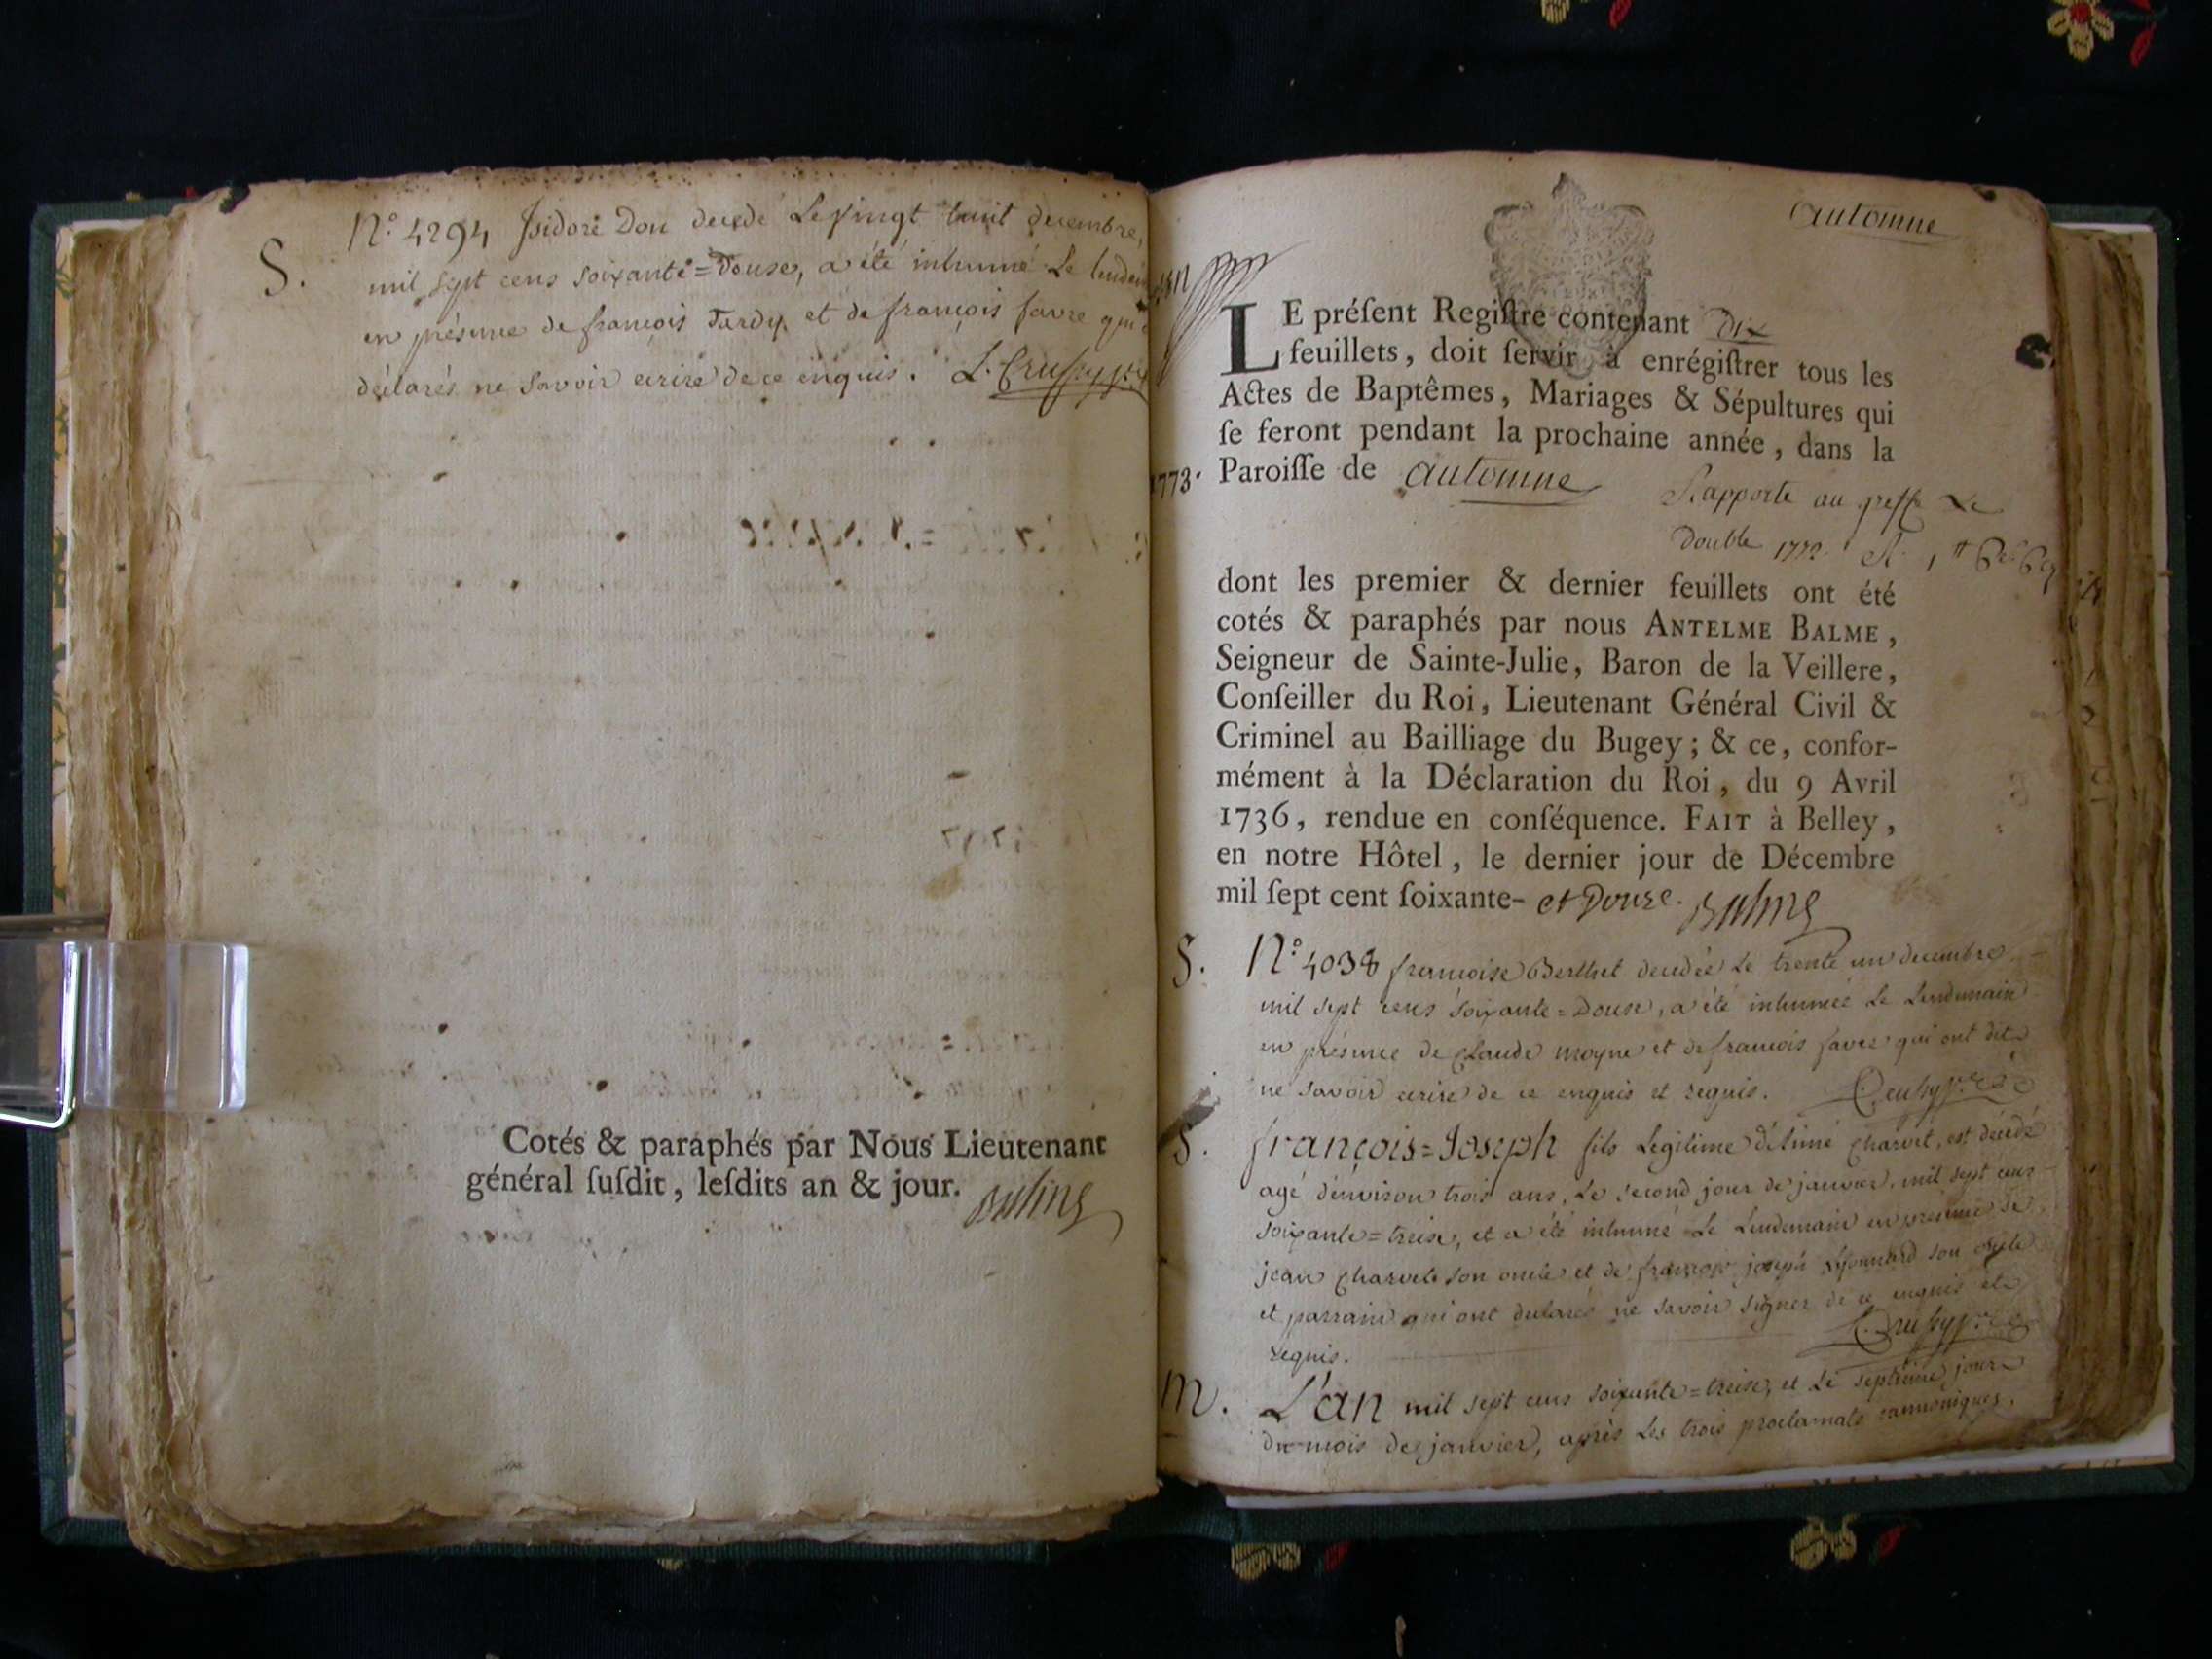 S. N.º 4294 Isidore Don decedé Le vingt huit decembre,
mil sept cens soixante=Douse, a été inhumé Le
en présence de françois Tardy et de françois favre qui
déclarés ne savoir ecrire de ce enquis.
Cotés & paraphés par Nous Lieutenant
général ſuſdit, leſdits an & jour. Balme
automne
LE préſent Regiſtre contenant Dix
feuillets, doit ſervir à enrégiſtrer tous les
Actes de Baptêmes, Mariages & Sépultures qui
ſe feront pendant la prochaine année, dans la
1773. Paroiſſe de automne
Rapporté au greffe Le
Double
dont les premier & dernier feuillets ont été
cotés & paraphés par nous ANTELME BALME,
Seigneur de Sainte-Julie, Baron de la Veillere,
Conſeiller du Roi, Lieutenant Général Civil &
Criminel au Bailliage du Bugey; & ce, confor-
mément à la Déclaration du Roi, du 9 Avril
1736, rendue en conſéquence. FAIT à Belley,
en notre Hôtel, le dernier jour de Décembre
mil ſept cent ſoixante- et Douze. Balme
S. N.º 4038 francoise Berthet decedée Le trente un decembre
mil sept cens soixante=Douse, a été inhumée Le Lendemain
en présence de Claude moyne et de francois favre qui ont dit
ne savoir ecrire de ce enquis et requis.
S. françois=Joseph fils Legitime d'Aimé Charvet, est decedé
agé d'environ trois ans, Le second jour de janvier, mil sept cens
soixante=treise, et a été inhumé Le Lendemain en présence de
jean Charvet son oncle et de françois joseph son oncle
et parrain qui ont declarés ne savoir signer de ce enquis et
requis.
M. L'an mil sept cens soixante=treise, et Le septième jour
du mois de janvier, après Les trois proclamats cannoniques,